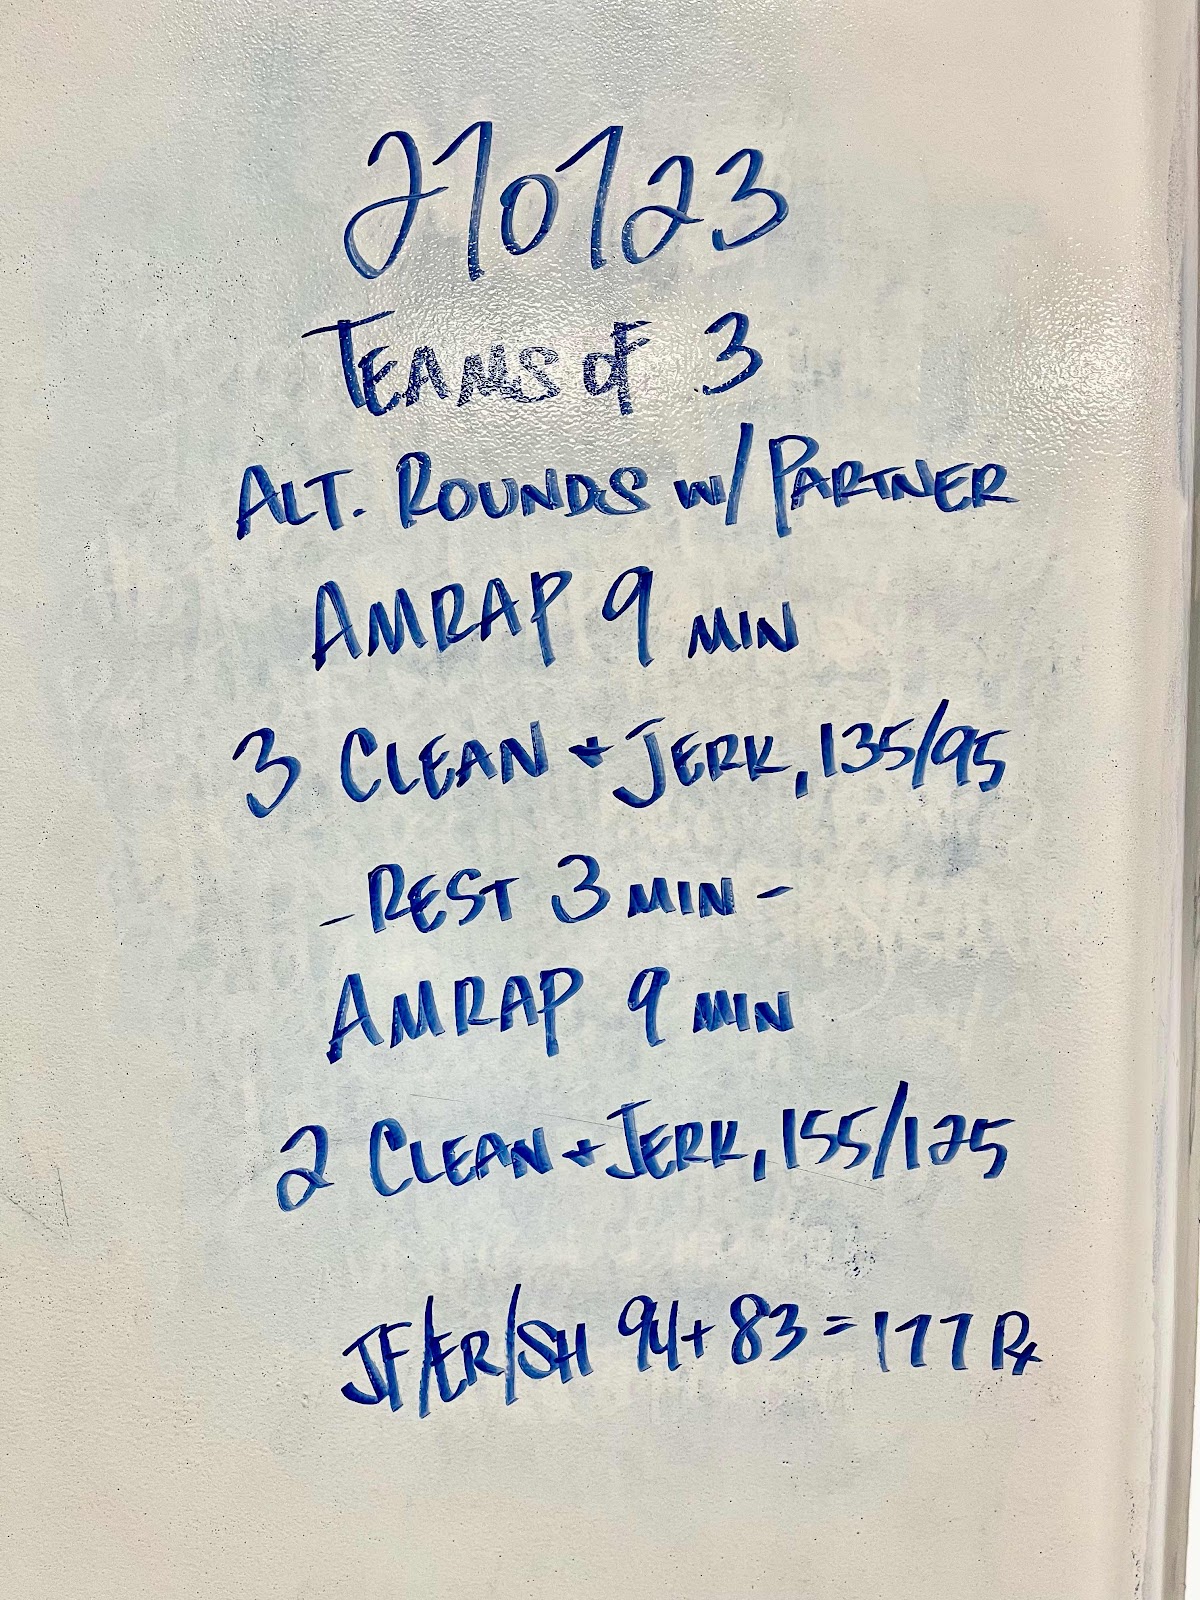 210123
TEAMS OF 3
ALT. ROUNDS W/ PARTNER
AMRAP 9 MIN
3 CLEAN + JERK, 135/95
- REST 3 MIN -
AMRAP 9 MIN
2 CLEAN + JERK, 155/125
JF/ER/SH 94+83=177 Rx